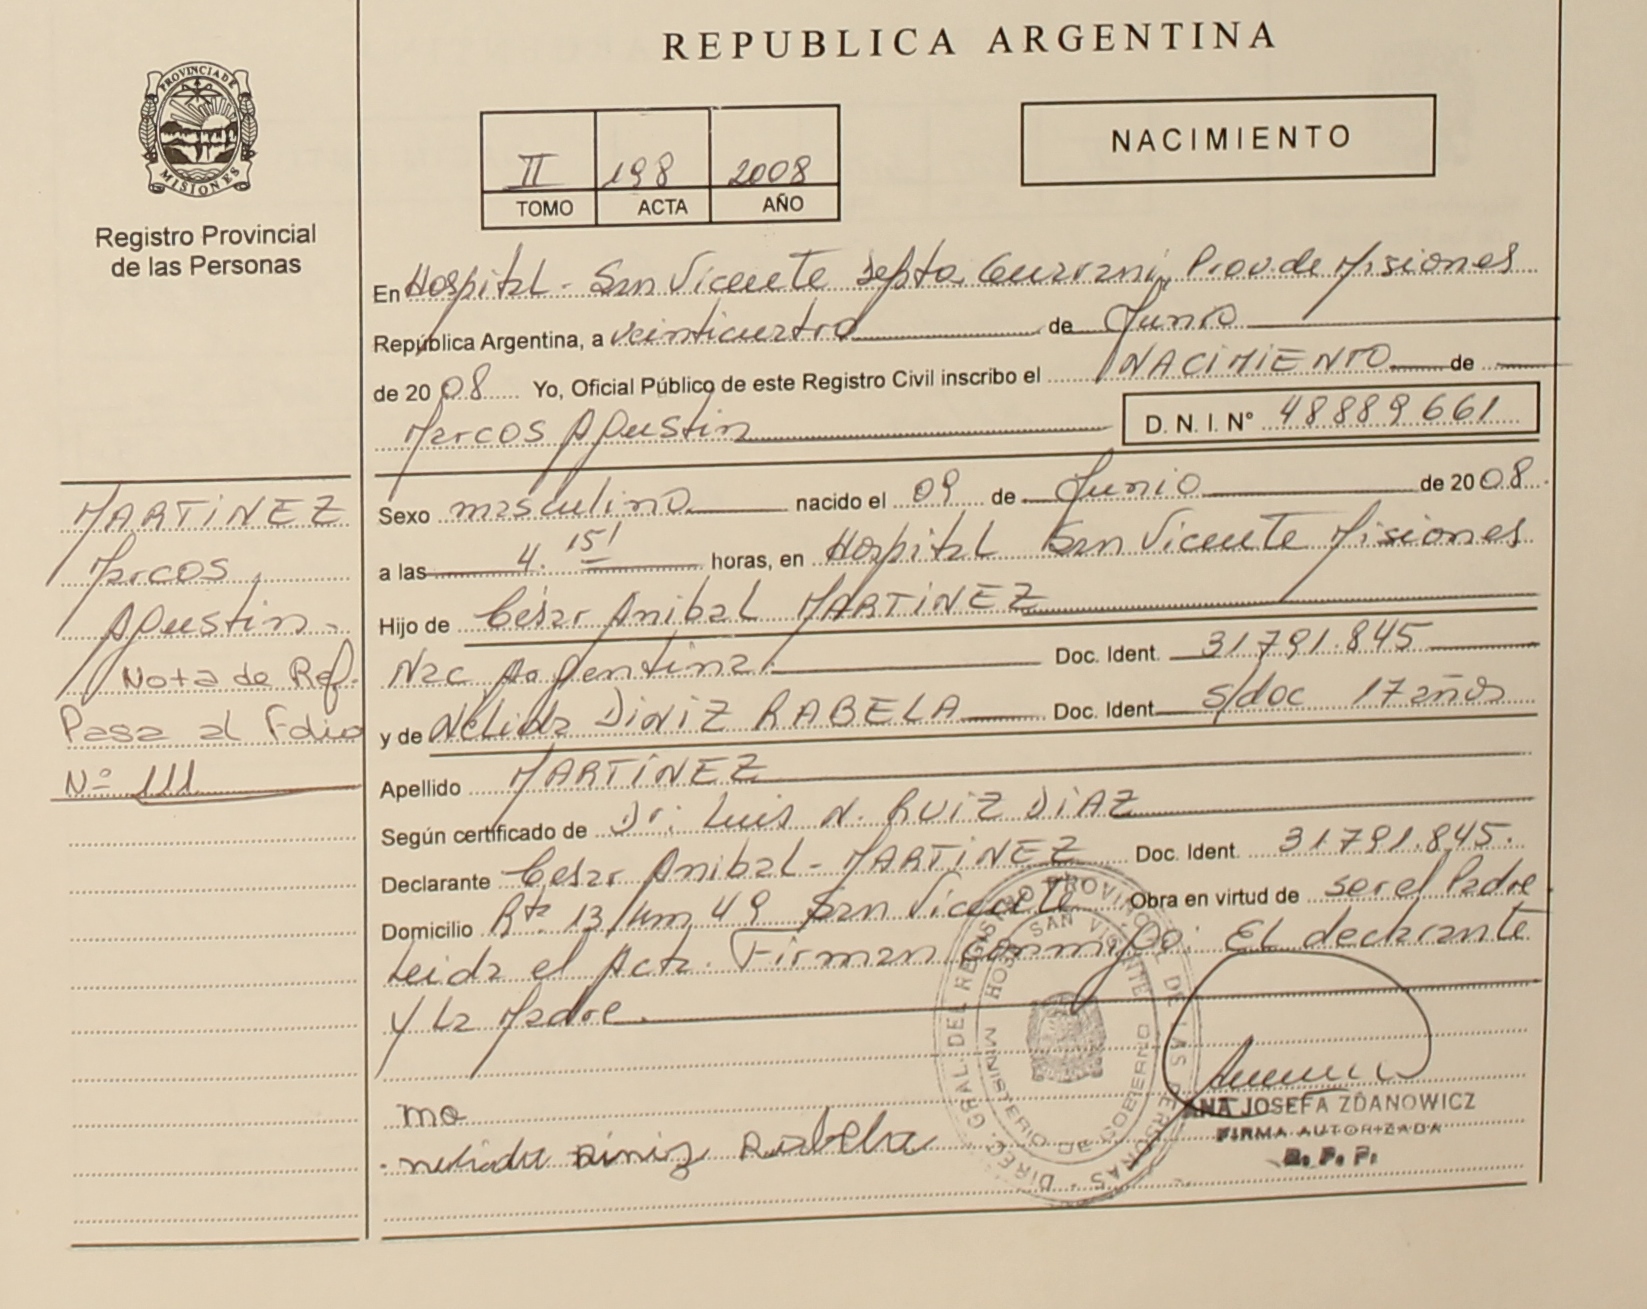 REPUBLICA ARGENTINA
PROVINCIA DE MISIONES
Registro Provincial
de las Personas
II 198 2008
TOMO ACTA AÑO
NACIMIENTO
En Hospital - San Vicente Depto. Guaraní, Prov. de Misiones
República Argentina, a veinticuatro de Junio
de 2008 Yo, Oficial Público de este Registro Civil inscribo el NACIMIENTO de
Marcos Agustin D. N. I. Nº 48889661
Sexo masculino nacido el 09 de Junio de 2008.
a las 4. 15' horas, en Hospital San Vicente Misiones
Hijo de César Anibal MARTINEZ
Nac Argentina. Doc. Ident. 31791.845
y de Nélida DINIZ RABELA Doc. Ident. s/doc 17 años
Apellido MARTINEZ
Según certificado de Dr: Luis N. RUIZ DIAZ
Declarante César Anibal - MARTINEZ Doc. Ident. 31791.845.
Domicilio Rta 13/km 49 San Vicente Obra en virtud de ser el Padre.
Leida el Acta. Firman conmigo: El declarante
y La Madre.
nelida diniz Rabela
MARTINEZ
Marcos
Agustin -
Nota de Ref.
Pasa al Folio
Nº 111
DIREC. GRAL. DEL REGISTRO PROVINCIAL DE LAS PERSONAS
HOSP. SAN VICENTE
MINISTERIO DE GOBIERNO
ANA JOSEFA ZDANOWICZ
FIRMA AUTORIZADA
R. P. P.